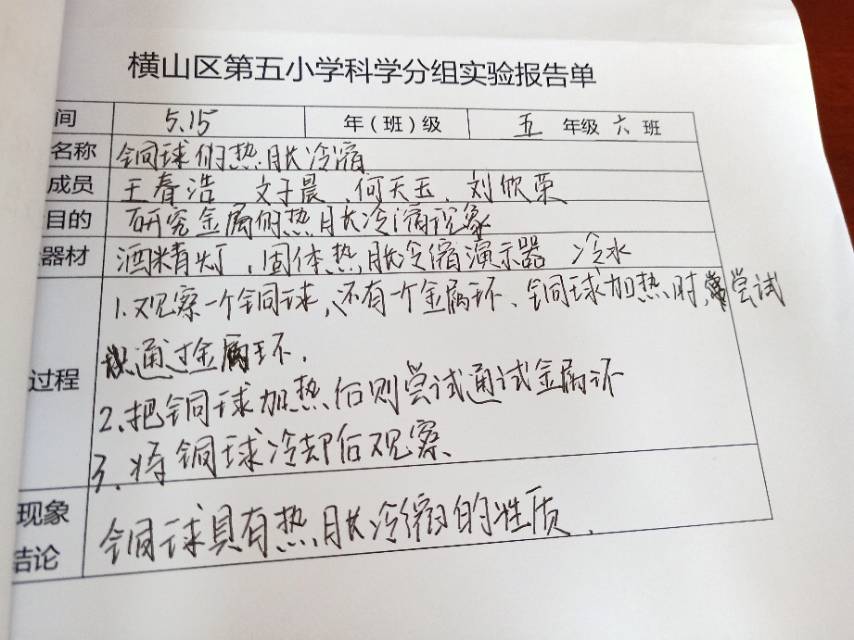 横山区第五小学科学分组实验报告单
间 5.15 年(班)级 五 年级 六 班
名称 铜球的热胀冷缩
成员 王春浩 文子晨、何天玉、刘欣荣
目的 研究金属的热胀冷缩现象
器材 酒精灯、固体热胀冷缩演示器 冷水
1.观察一个铜球,还有一个金属环、铜球加热时,尝试
过程 通过金属环.
2.把铜球加热后则尝试通试金属环
3.将铜球冷却后观察.
现象
铜球具有热胀冷缩的性质.
结论